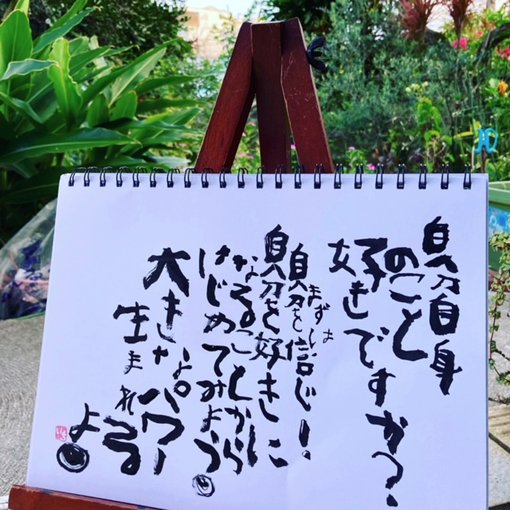 自分自身
のこと
好きですか?
まずは
自分を信じ!
自分を好きに
なることから
はじめてみよう。
大きなパワー
生まれる
よ。